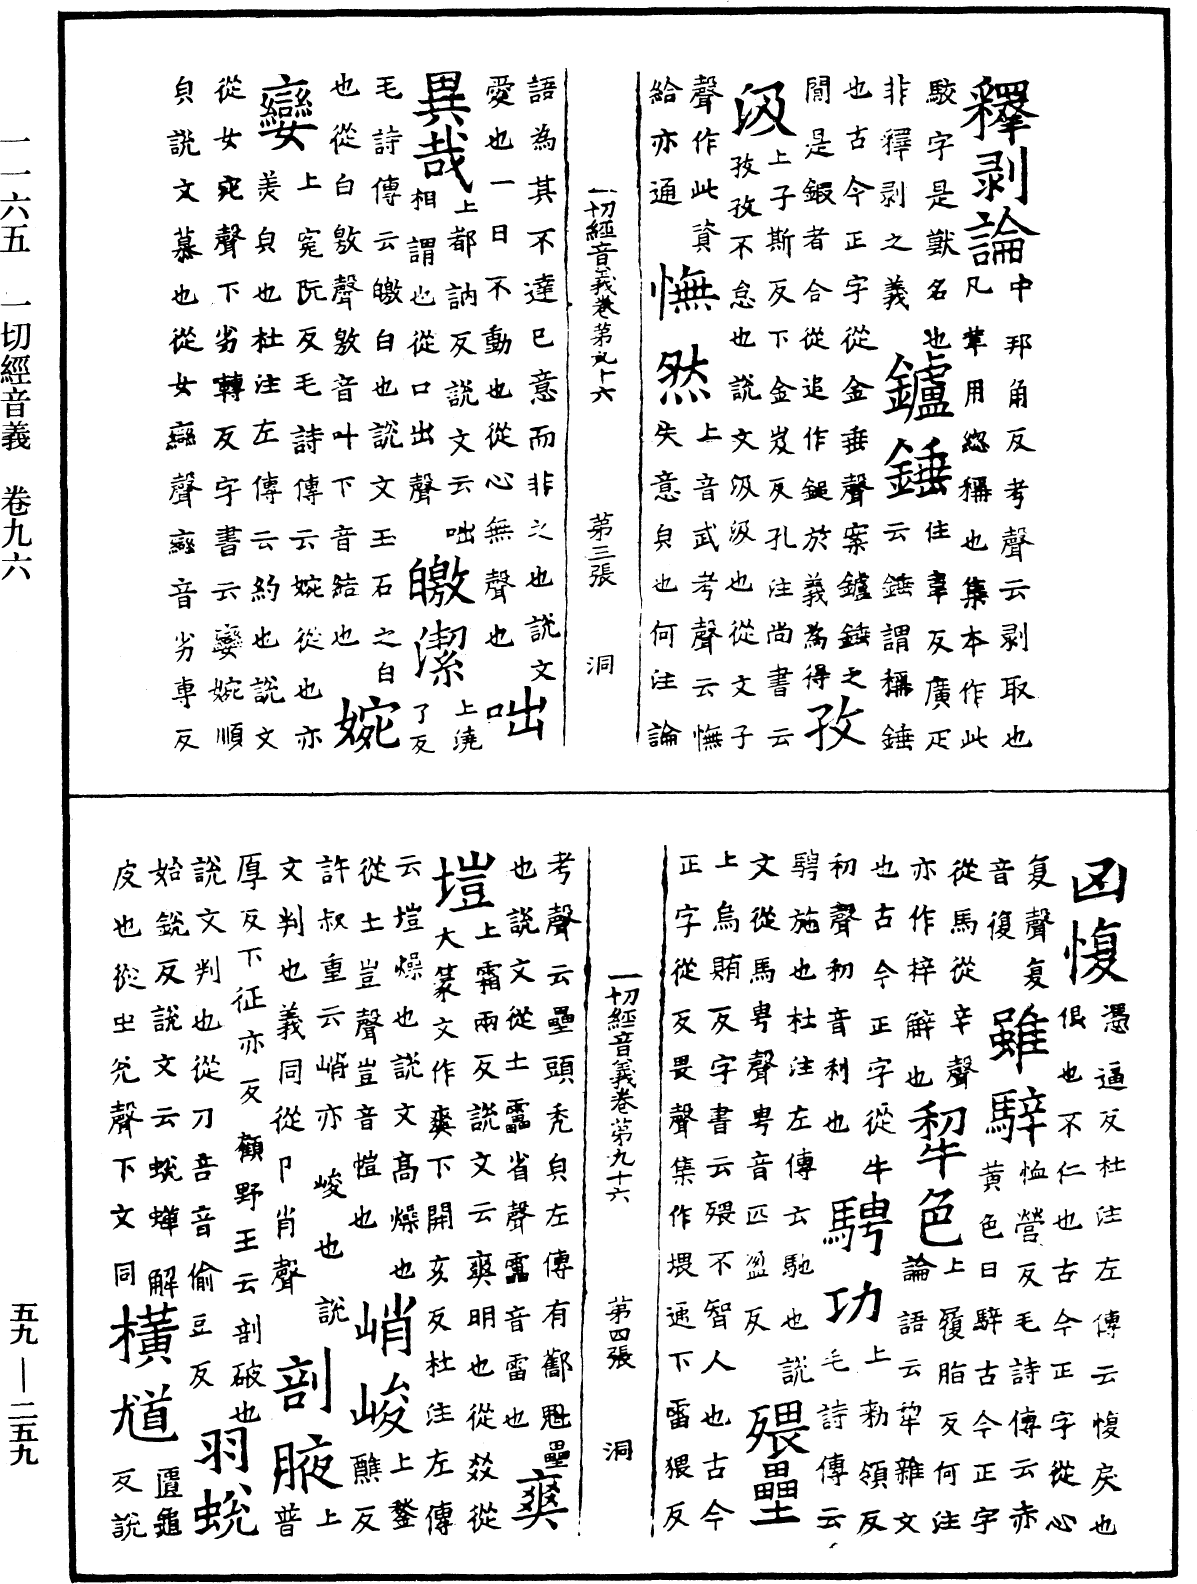 一一六五 一切經音義 卷九六
釋剥論中邦角反考聲云剥取也
駮字是獸名也凡著用怱稱也集本作此
非釋剥之義 鑪錘住事反廣疋
也古今正字從金垂聲案鑪錘之
云錘謂稱錘
間是鍛者合從追作鎚於義為得 孜
汲上子斯反下金岌反孔注尚書云
孜孜不怠也說文汲汲也從文子
聲作此資 憮然上音武考聲云憮
給亦通 失意皃也何注論
一切經音義卷第九十六 第三張 洞
語為其不達己意而非之也說文
愛也一日不動也從心無聲也 咄
異哉上都訥反說文云咄
相謂也從口出聲 皦潔上澆了反
毛詩傳云皦白也說文玉石之白
也從白敫聲敫音叶下音結也 婉
孌上宛阮反毛詩傳云婉從也亦
美皃也杜注左傳云約也說文
從女宛聲下劣轉反字書云孌婉順
皃說文慕也從女䜌聲䜌音劣專反
凶愎憑逼反杜注左傳云愎戾也
佷也不仁也古今正字從心
复聲复音復 雖騂恤營反毛詩傳云赤
黃色日騂古今正字
從馬從辛聲 犂色上履脂反何注
論語云犂雜文
亦作梓解也
也古今正字從牛
初聲初音利也 騁功上勑領反
毛詩傳云
騁施也杜注左傳云馳也說
文從馬甹聲甹音匹盈反 猥壘
上烏賄反字書云猥不智人也古今
正字從反畏聲集作堁通下雷猥反
一切經音義卷第九十六 第四張 洞
考聲云壘頭秃皃左傳有鄱魁壘
也說文從土畾省聲畾音雷也 爽
塏上霜兩反說文云爽明也從㸚從
大篆文作爽下開亥反杜注左傳
云塏燥也說文高燥也 峭峻上鍫
醮反
從土豈聲豈音愷也
許叔重云峭亦峻也說 剖腋上普
文判也義同從卩肖聲
厚反下征亦反顧野王云剖破也
說文判也從刀咅音偷豆反 羽蛻
始銳反說文云蛻蟬解 匱龜
皮也從虫兊聲下文同 橫尵反說
五九—二五九